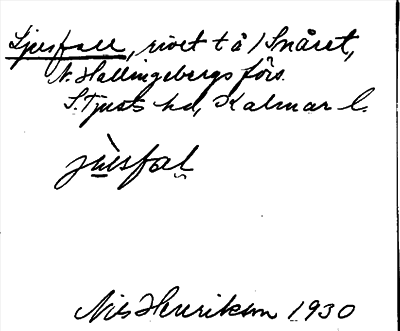 Ljusfall, rivet t å i Snåret,
N. Hallingebergs förs.
S. Tjusts hd, Kalmar l.
jùsfal
Nils Henrikson 1930